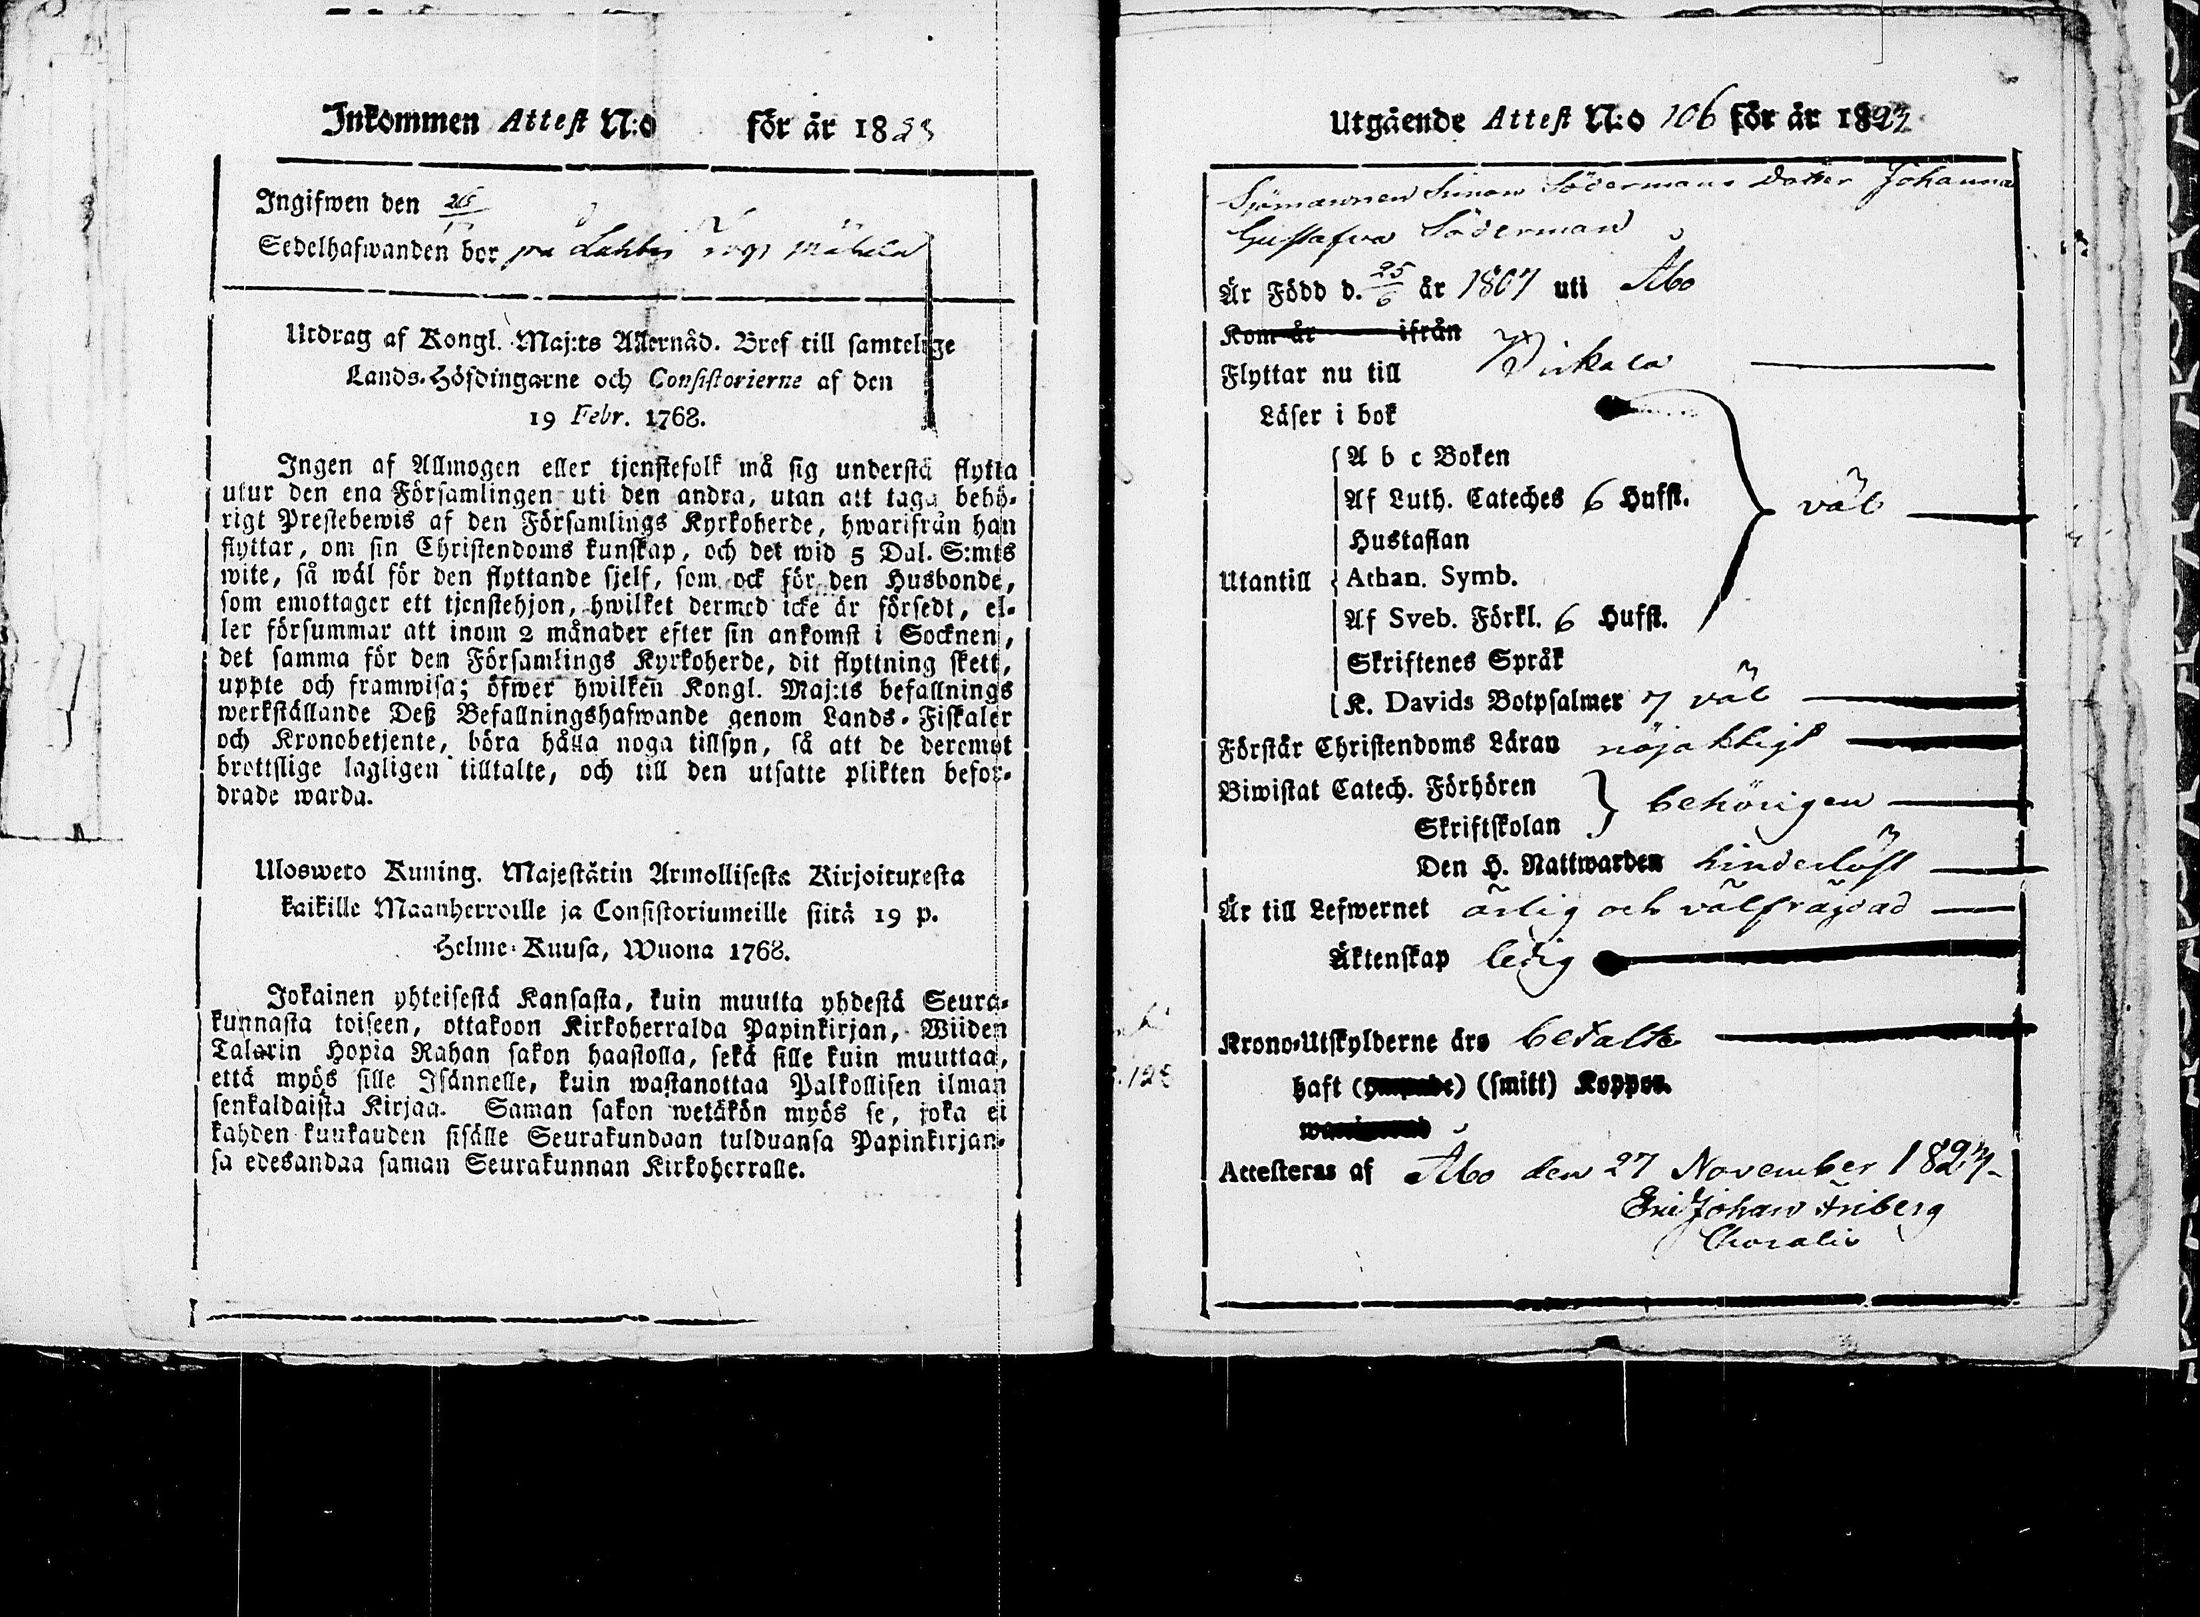 Inkommen Attest N:o för år 1823
Ingifwen den 26
Sedelhafwanden bor på
Utdrag af Kongl. Maj:ts Allernåd. Bref till samtelige
Lands-Höfdingarne och Consistorierne af den
19 Febr. 1768.
Ingen af Allmogen eller tjenstefolk må sig understå flytta
utur den ena Församlingen uti den andra, utan att taga behö-
rigt Prestebewis af den Församlings Kyrkoherde, hwarifrån han
flyttar, om sin Christendoms kunskap, och det wid 5 Dal. S:mts
wite, så wäl för den flyttande sjelf, som ock för den Husbonde,
som emottager ett tjenstehjon, hwilket dermed icke är försedt, el-
ler försummar att inom 2 månader efter sin ankomst i Socknen,
det samma för den Församlings Kyrkoherde, dit flyttning skett,
uppte och framwisa; öfwer hwilken Kongl. Maj:ts befallnings
werkställande Deß Befallningshafwande genom Lands-Fiskaler
och Kronobetjente, böra hålla noga tillsyn, så att de deremot
brottslige lagligen tilltalte, och till den utsatte plikten befor-
drade warda.
Uloswето Kuning. Majestätin Armollisesta Kirjoituxesta
kaikille Maanherroille ja Consistoriumeille siitä 19 p.
Helme-Kuusa, Wuona 1768.
Jokainen yhteisestä Kansasta, kuin muutta yhdestä Seura-
kunnasta toiseen, ottakoon Kirkoherralda Papinkirjan, Wiiden
Talarin Hopia Rahan sakon haastolla, sekä sille kuin muuttaa,
että myös sille Isännelle, kuin wastanottaa Palkollisen ilman
senkaldaista Kirjaa. Saman sakon wetäkön myös se, joka ei
kahden kuukauden sisälle Seurakundaan tulduansa Papinkirjan-
sa edesandaa saman Seurakunnan Kirkoherralle.
Utgående Attest N:o 106 för år 1823
Sjömannen Simon Södermans Dotter Johanna
Gustafva Söderman
Är Född d. 25/6 år 1807 uti Åbo
Kom år ifrån
Flyttar nu till Virkala
Läser i bok
A b c Boken
Af Luth. Cateches 6 Hufst. väl
Hustaflan
Utantill Athan. Symb.
Af Sveb. Förkl. 6 Hufst.
Skriftenes Språk
K. Davids Botpsalmer 7 väl
Förstår Christendoms Läran nöjaktigt
Biwistat Catech. Förhören behörigen
Skriftskolan
Den H. Nattwarden hinderlöst
Är till Lefwernet ärlig och välfrägdad
Äktenskap ledig
Krono-Utskylderne äro betalte
haft (smitt) Koppor.
Attesteras af Åbo den 27 November 1823
Eric Johan Friberg